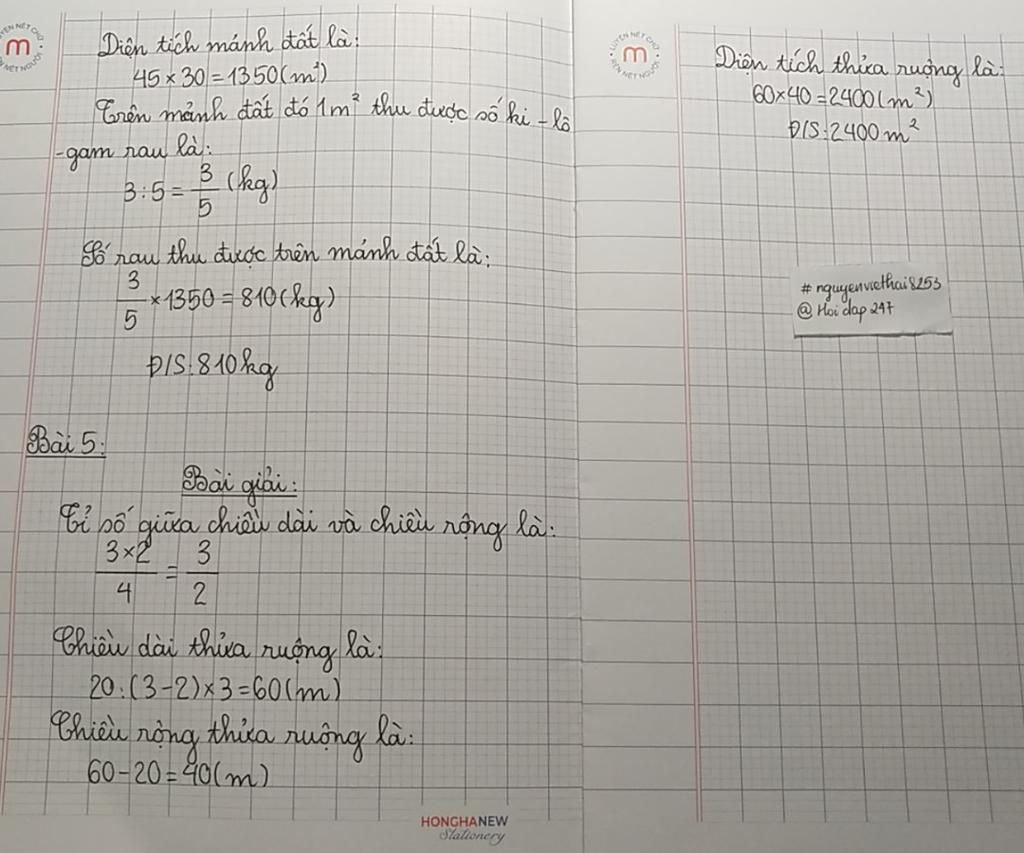 Diện tích mảnh đất là:
45 × 30 = 1350 (m²)
Trên mảnh đất đó 1m² thu được số ki - lô
- gam rau là:
3 : 5 = 3/5 (kg)
Số rau thu được trên mảnh đất là:
3/5 × 1350 = 810 (kg)
Đ/S: 810 kg
Bài 5:
Bài giải:
Tỉ số giữa chiều dài và chiều rộng là:
3×2/4 = 3/2
Chiều dài thửa ruộng là:
20 : (3 - 2) × 3 = 60 (m)
Chiều rộng thửa ruộng là:
60 - 20 = 40 (m)
HONGHANEW
Stationery
m
LUYỆN NÉT CHỮ
RÈN NẾT NGƯỜI
Diện tích thửa ruộng là:
60 × 40 = 2400 (m²)
Đ/S: 2400 m²
# nguyenviethai8253
@ Hoi dap 247